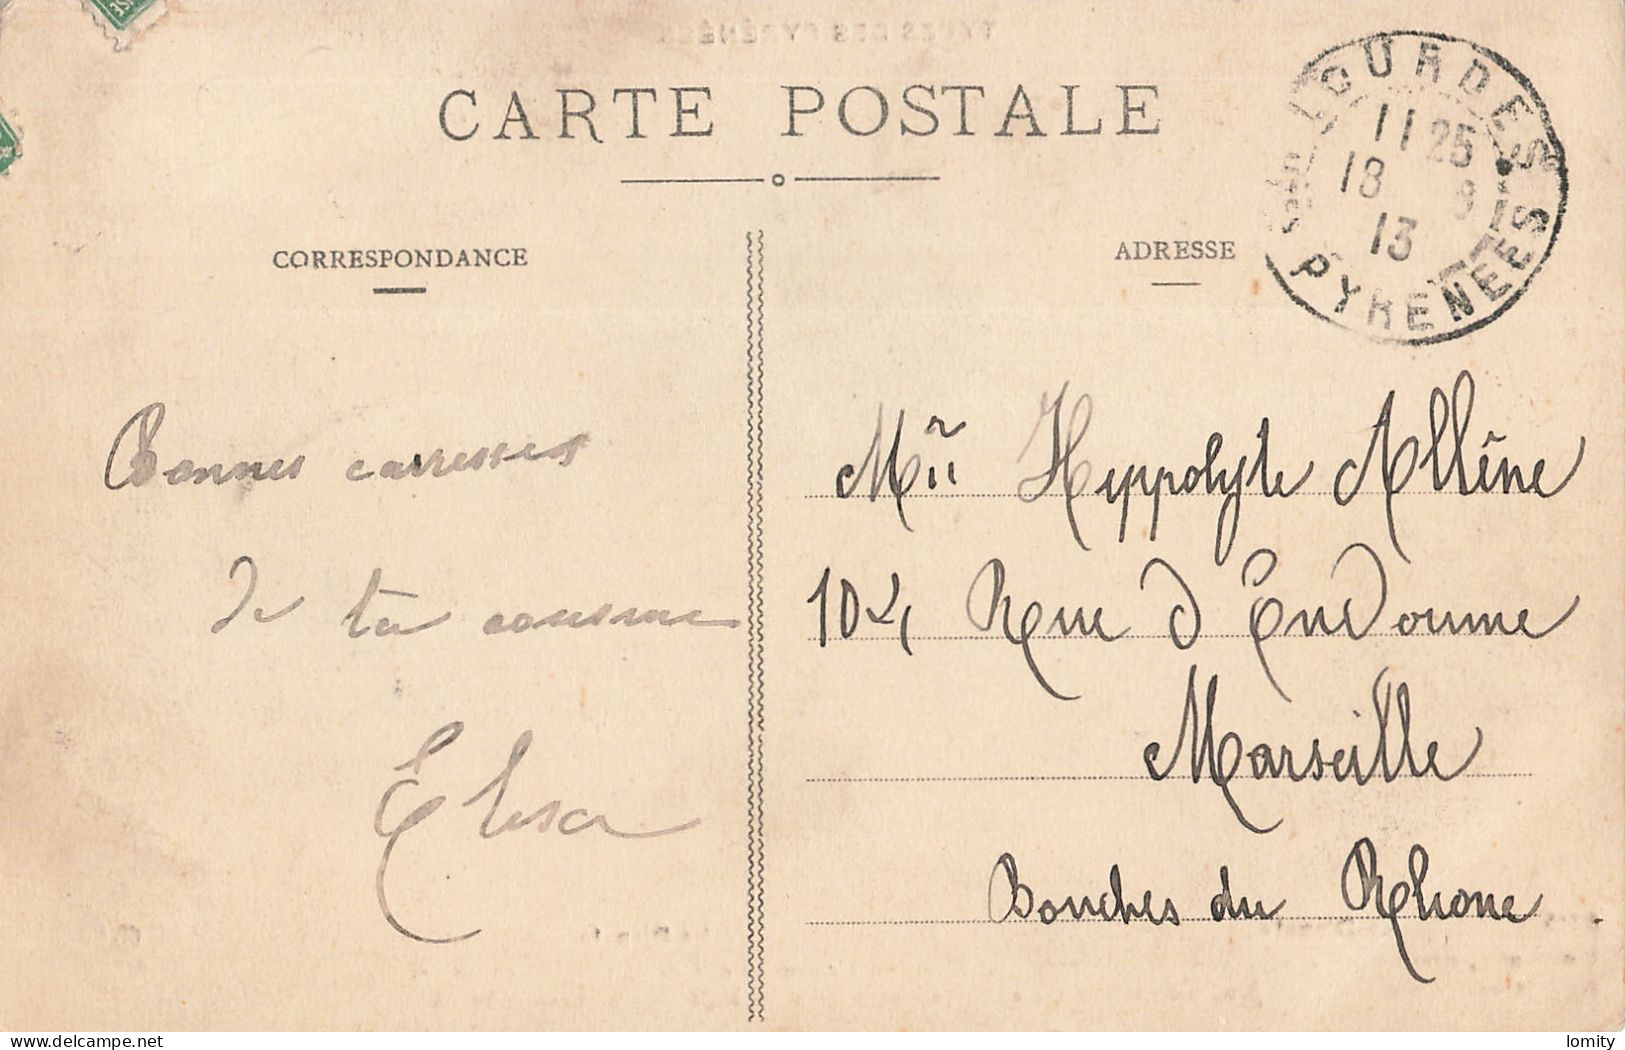 CARTE POSTALE
CORRESPONDANCE
ADRESSE
LOURDES
11 25
18 8
13
PYRENEES
Bonnes carresses
de ta cousine
Elisa
Mr Hippolyte Allène
102, Rue d'Endoume
Marseille
Bouches du Rhone
lomity